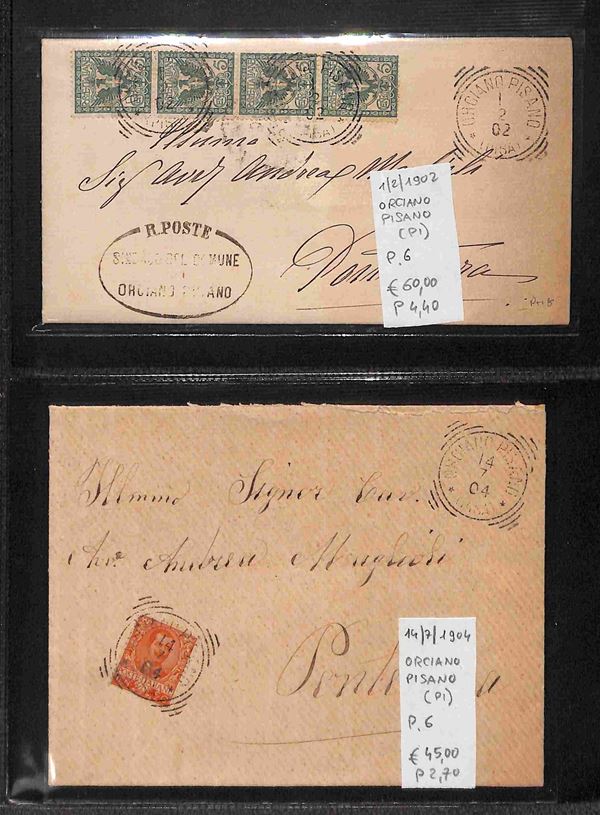 ORCIANO PISANO
1
2
02
(PISA)
Illmo
Sig Avv Andrea
1/2/1902
ORCIANO
PISANO
(PI)
P.6
€ 60,00
P 4,40
R. POSTE
SINDACO DEL COMUNE
ORCIANO PISANO
ORCIANO PISANO
14
7
04
(PISA)
Illmmo Signor Cav.
Avv Andrea
14
04
14/7/1904
ORCIANO
PISANO
(PI)
P.6
€ 45,00
P 2,70